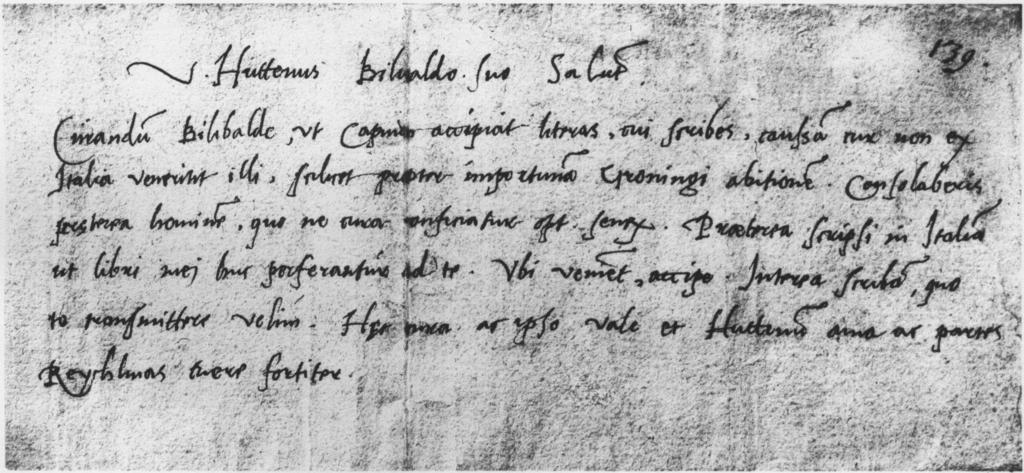 139.
V. Huttenus Bilibaldo suo Salutē
Curandū Bilibalde, ut Capnio accipiat literas, cui scribes, caussā cur non ex
Italia venerint illi, scilicet propter importunā Groningi abitionē. Consolaberis
praeterea hominē, quo ne cura conficiatur opt. senex. Praeterea scripsi in Italiā
ut libri mei huc perferantur ad te. Ubi venient, accipe. Interea scribā, quo
te transmittere velim. Hęc cura ac ipse vale et Huttenū ama ac partes
Reychlinias tuere fortiter.